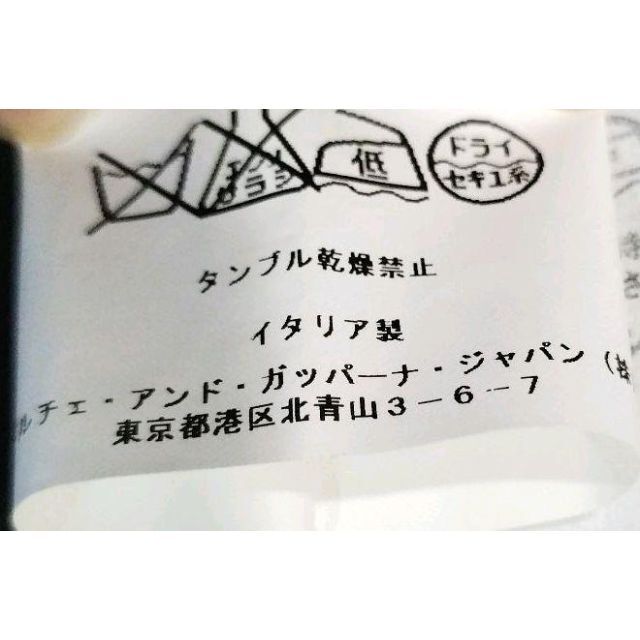 エンソ
サラシ
低
ドライ
セキユ系
タンブル乾燥禁止
イタリア製
ルチェ・アンド・ガッパーナ・ジャパン（株
東京都港区北青山３－６－７